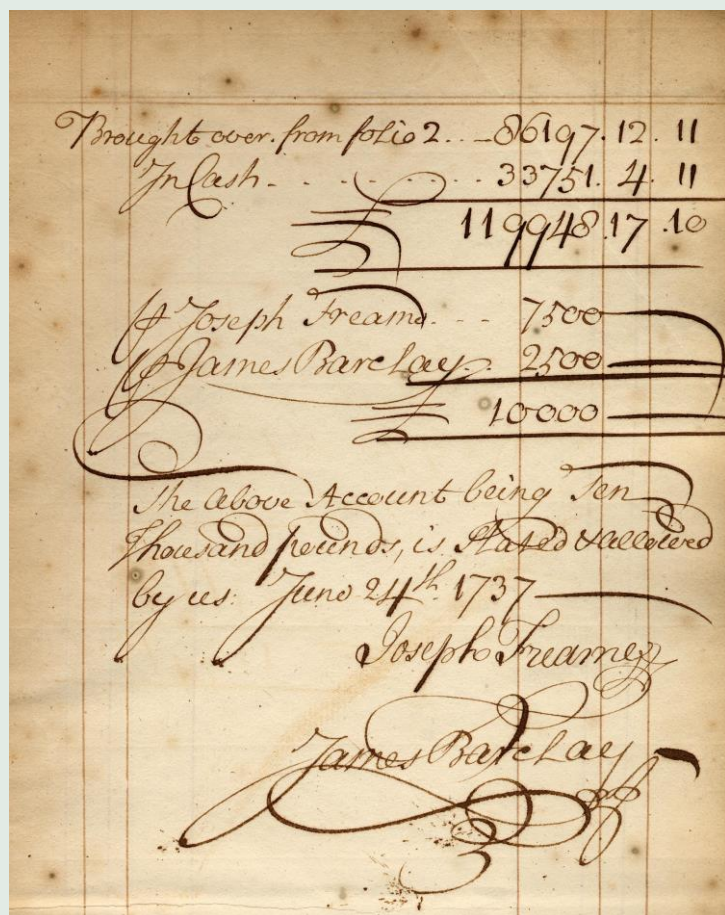 Brought over from folio 2 - - - 86197. 12. 11
In Cash - - - - - - - - 33751. 4. 11
119948. 17. 10
℔ Joseph Freame - - - 7500
℔ James Barclay - - 2500
10000
The above Account being Ten
Thousand pounds, is Stated & allowed
by us June 24th. 1737
Joseph Freame
James Barclay